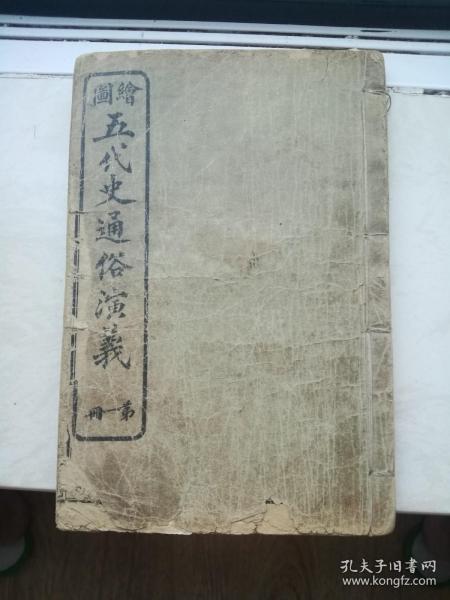 繪圖
五代史通俗演義
第一冊
孔夫子旧书网
www.kongfz.com